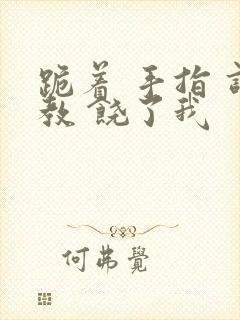 跪着 手指
教 饶了我
何弗觉